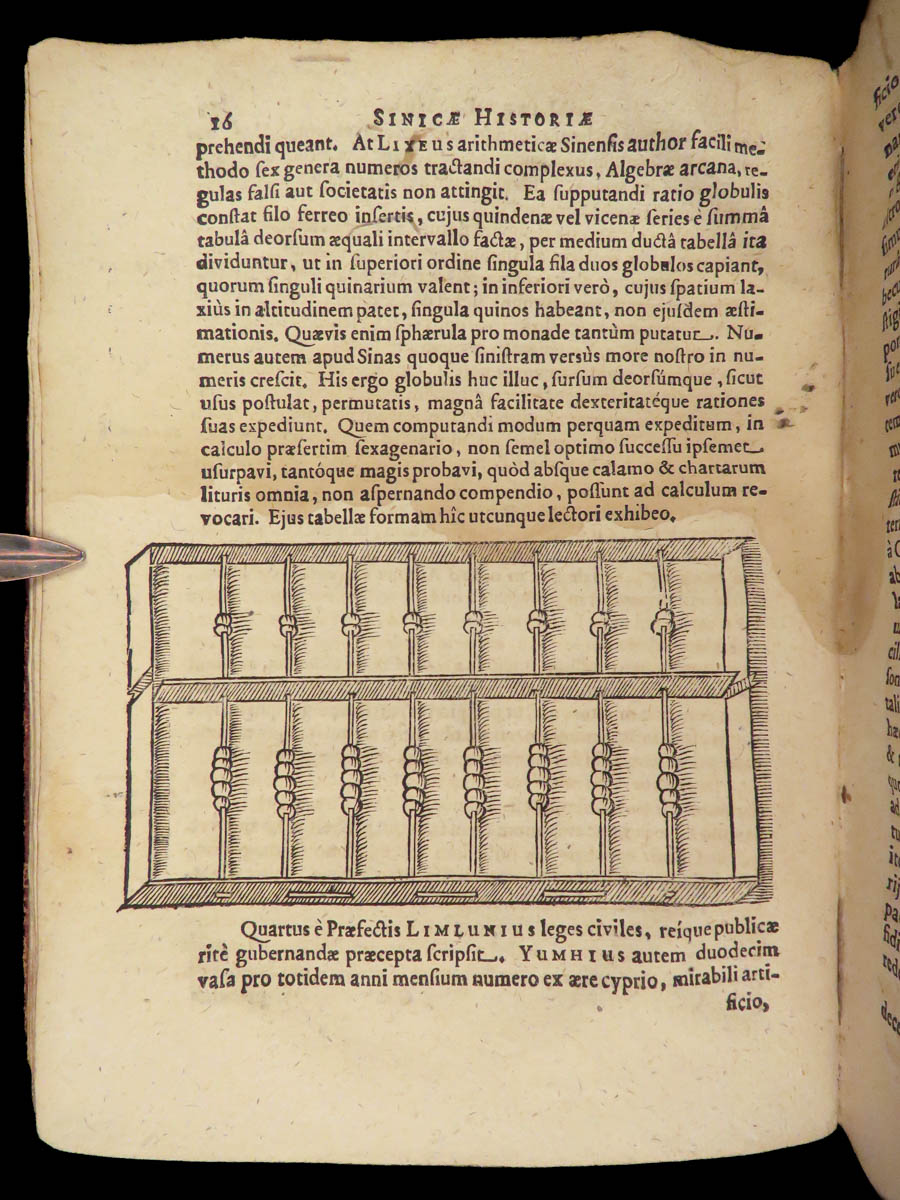 16 SINICÆ HISTORIÆ
prehendi queant. At LIXEUS arithmeticæ Sinenſis author facili me-
thodo ſex genera numeros tractandi complexus, Algebræ arcana, re-
gulas falſi aut ſocietatis non attingit. Ea ſupputandi ratio globulis
conſtat filo ferreo inſertis, cujus quindenæ vel vicenæ ſeries è ſummâ
tabulâ deorſum æquali intervallo factæ, per medium ductâ tabellâ ita
dividuntur, ut in ſuperiori ordine ſingula fila duos globulos capiant,
quorum ſinguli quinarium valent; in inferiori verò, cujus ſpatium la-
xiùs in altitudinem patet, ſingula quinos habeant, non ejuſdem æſti-
mationis. Quævis enim ſphærula pro monade tantùm putatur. Nu-
merus autem apud Sinas quoque ſiniſtram versùs more noſtro in nu-
meris creſcit. His ergo globulis huc illuc, ſurſum deorſúmque, ſicut
uſus poſtulat, permutatis, magnâ facilitate dexteritatéque rationes
ſuas expediunt. Quem computandi modum perquam expeditum, in
calculo præſertim ſexagenario, non ſemel optimo ſucceſſu ipſemet
uſurpavi, tantóque magis probavi, quòd abſque calamo & chartarum
lituris omnia, non aſpernando compendio, poſſunt ad calculum re-
vocari. Ejus tabellæ formam hîc utcunque lectori exhibeo.
Quartus è Præfectis LIMLUNIUS leges civiles, reíque publicæ
ritè gubernandæ præcepta ſcripſit. YUMHIUS autem duodecim
vaſa pro totidem anni menſium numero ex ære cyprio, mirabili arti-
ficio,